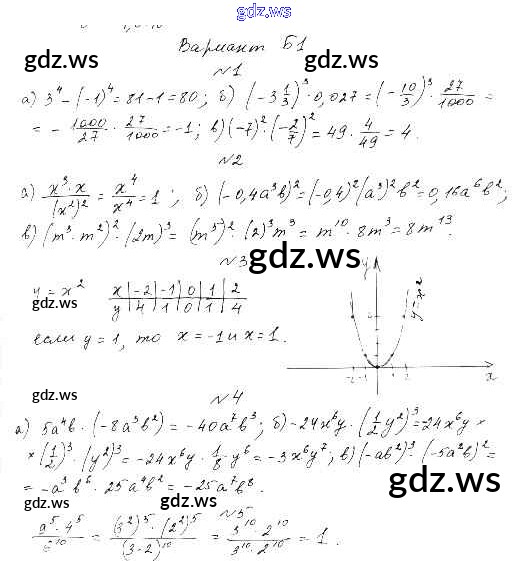 gdz.ws
Вариант Б1
№1
а) 3⁴ - (-1)⁴ = 81 - 1 = 80; б) (-3 1/3)³ · 0,027 = (-10/3)³ · 27/1000 =
= - 1000/27 · 27/1000 = -1; в) (-7)² · (-2/7)² = 49 · 4/49 = 4.
gdz.ws gdz.ws
№2
а) x³ · x / (x²)² = x⁴/x⁴ = 1; б) (-0,4a³b)² = (-0,4)² (a³)² b² = 0,16a⁶b²;
в) (m³ · m²)² · (2m)³ = (m⁵)² · (2)³ m³ = m¹⁰ · 8m³ = 8m¹³.
gdz.ws
№3
y = x² x | -2 | -1 | 0 | 1 | 2
y | 4 | 1 | 0 | 1 | 4
если y = 1, то x = -1 и x = 1.
y
y = x²
-2 -1 1 2
x
gdz.ws
№4
а) 5a⁴b · (-8a³b²) = -40a⁷b³; б) -24x⁶y · (1/2 y²)³ = 24x⁶y ×
× (1/2)³ · (y²)³ = -24x⁶y · 1/8 · y⁶ = -3x⁶y⁷; в) (-ab²)³ · (-5a²b)² =
= -a³b⁶ · 25a⁴b² = -25a⁷b⁸.
gdz.ws gdz.ws gdz.ws
№5
9⁵ · 4⁵ / 6¹⁰ = (3²)⁵ · (2²)⁵ / (3-2)¹⁰ = 3¹⁰ · 2¹⁰ / 3¹⁰ · 2¹⁰ = 1.